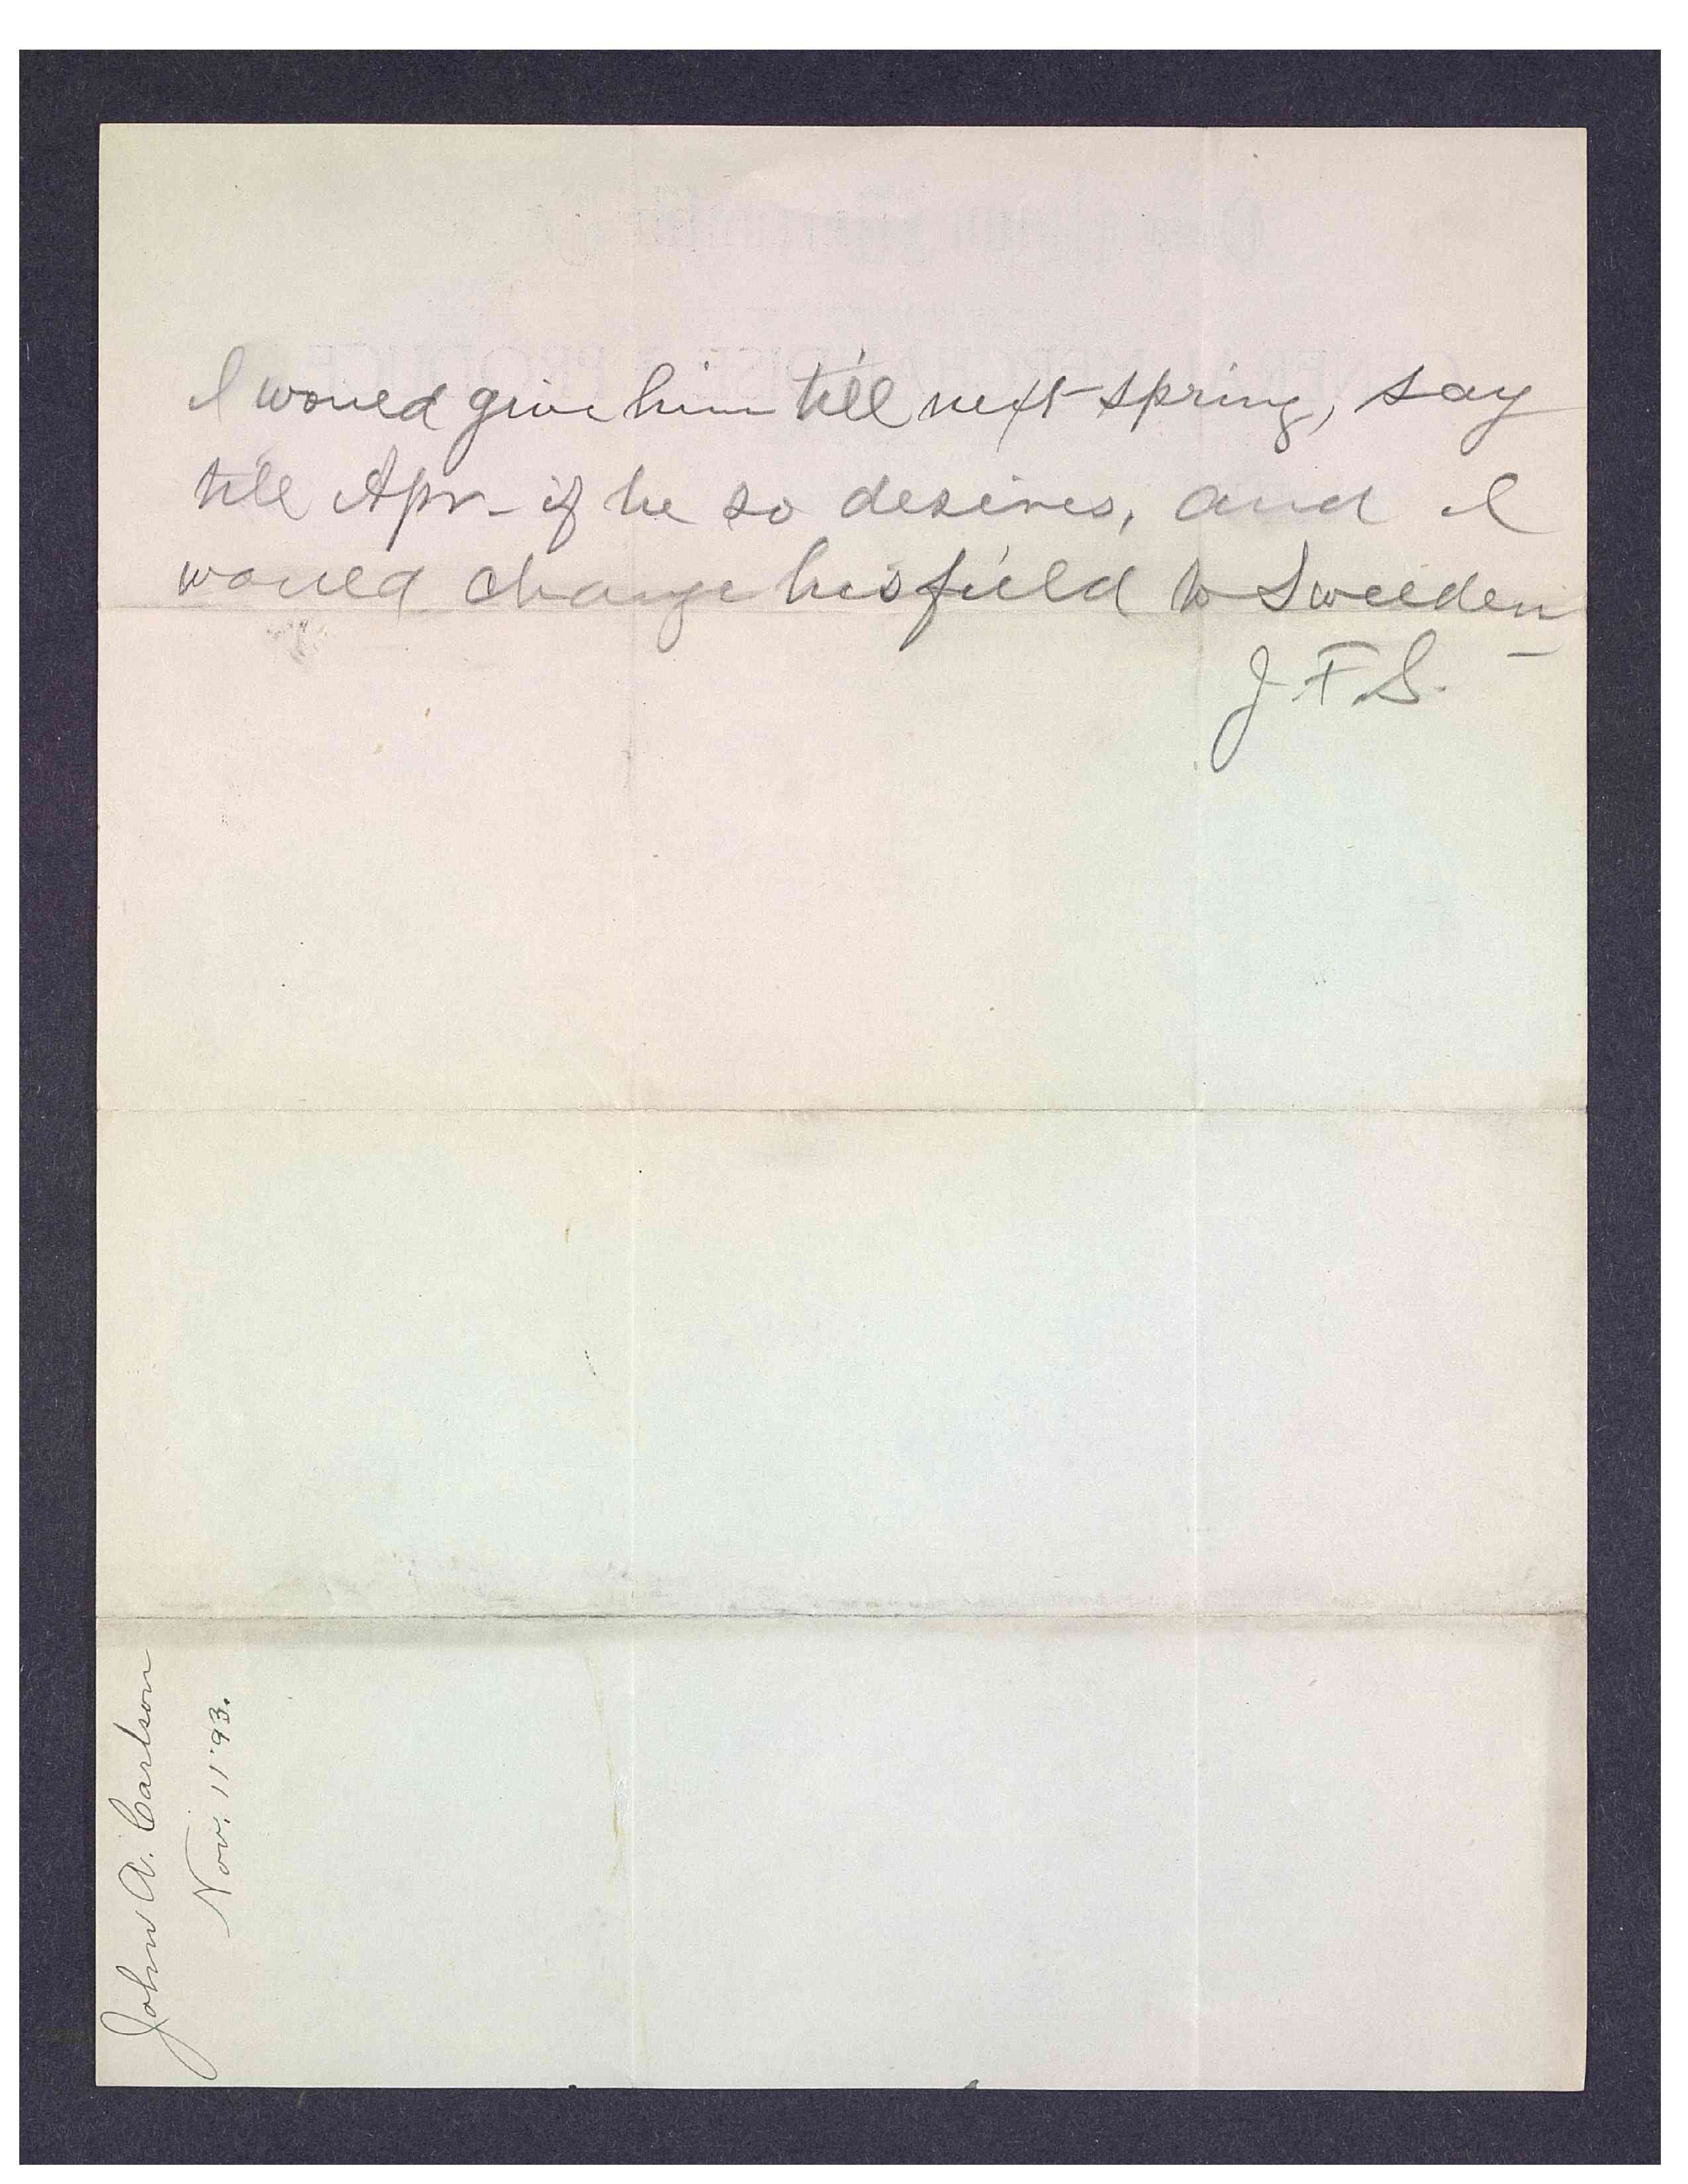 I would give him till next spring, say
till Apr- if he so desires, and I
would change his field to Sweeden
J F S.
John A. Carlson
Nov. 11 '93.